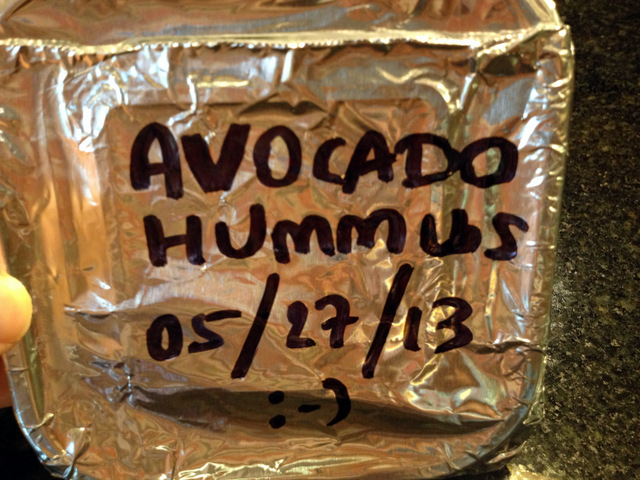 AVOCADO
HUMMUS
05/27/13
:-)